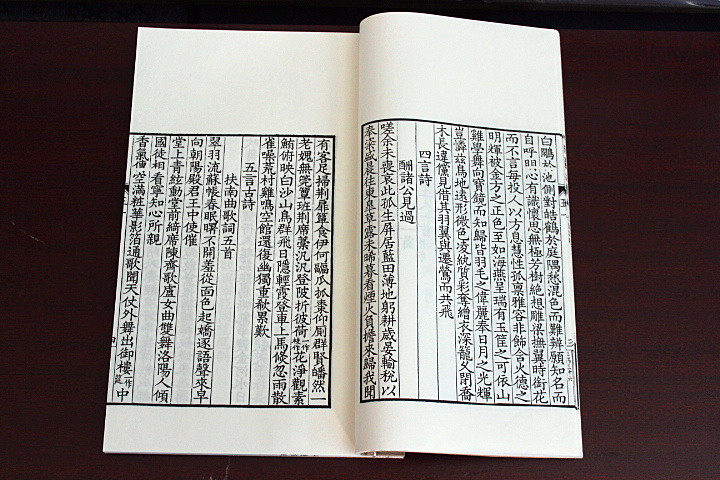 白鷴於池側對皓鶴於庭隅愁混色而難辨願知名而
自呼明心有識懷思無極芳樹絕想雕梁撫翼時銜花
而不言每投人以方息慧性孤稟雅容非飾含火德之
明輝被金方之正色至如海燕呈瑞有玉筐之可依山
雞學舞向寶鏡而知歸皆羽毛之偉麗奉日月之光輝
豈壽茲鳥地遠形微色凌紈質彩奪繒衣深籠久閉喬
木長違儻見借其羽翼與遷鶯而共飛
四言詩
酬諸公見過
嗟余未喪哀此孤生屏居藍田薄地躬耕歲晏輸稅以
奉粢盛晨往東皋草露未晞暮看煙火負擔來歸我聞
有客足掃荆扉簞食伊何疈瓜抓棗仰厠群賢皤然一
老媿無莞簟班荆席藁汎汎登陂折彼荷花淨觀素
鮪俯映白沙山鳥群飛日隱輕霞登車上馬倏忽雨散
雀噪荒村雞鳴空館還復幽獨重欷累歎
五言古詩
扶南曲歌詞五首
翠羽流蘇帳春眠曙不開羞從面色起嬌逐語聲來早
向朝陽殿君王中使催
堂上青絃動堂前綺席陳齊歌盧女曲雙舞洛陽人傾
國徒相看寧知心所親
香氣傳空滿粧華影箔通歌聞天仗外舞出御樓中